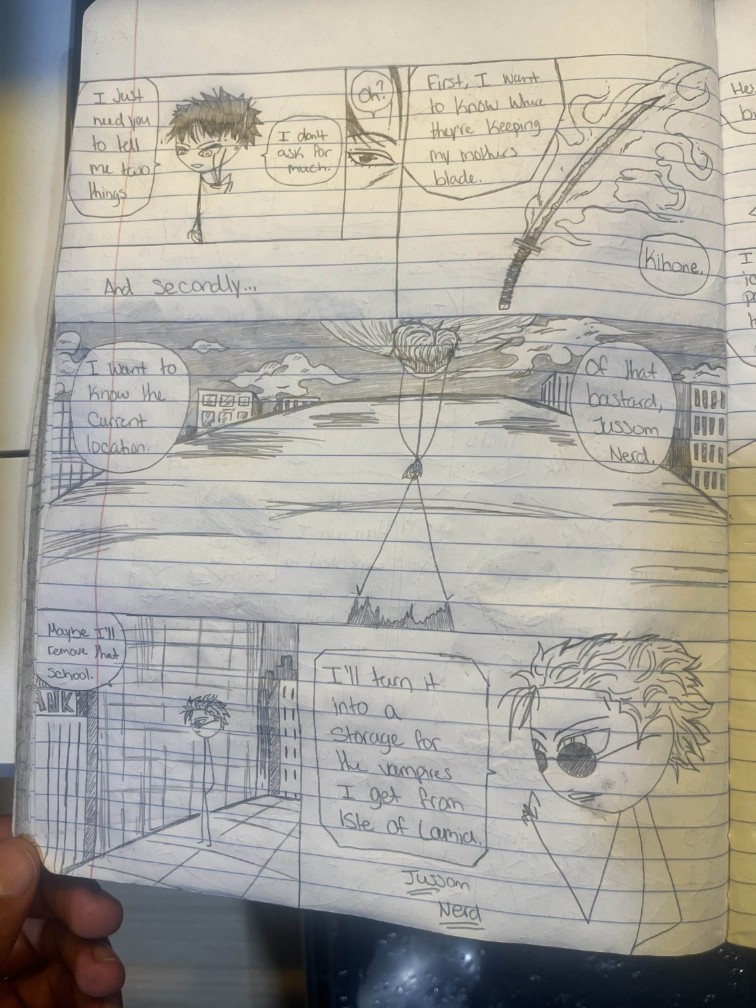 I Just
need you
to tell
me two
things
I don't
ask for
much.
Oh?
First, I want
to know where
they're keeping
my mothers
blade.
Kihone.
And secondly...
I want to
know the
current
location.
Of that
bastard,
Jussom
Nerd.
Maybe I'll
remove that
school.
ANK
I'll turn it
into a
storage for
the vampires
I get from
Isle of Lamia.
Jussom
Nerd
He
b
I